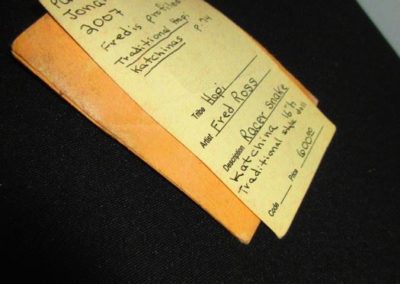 Jona
2007
Fred is profiled
Traditional Hopi
Katchinas P 74
Tribe Hopi
Artist Fred Ross
Description Racer Snake
Katchina 16"h
Traditional style doll
Code Price 600.00